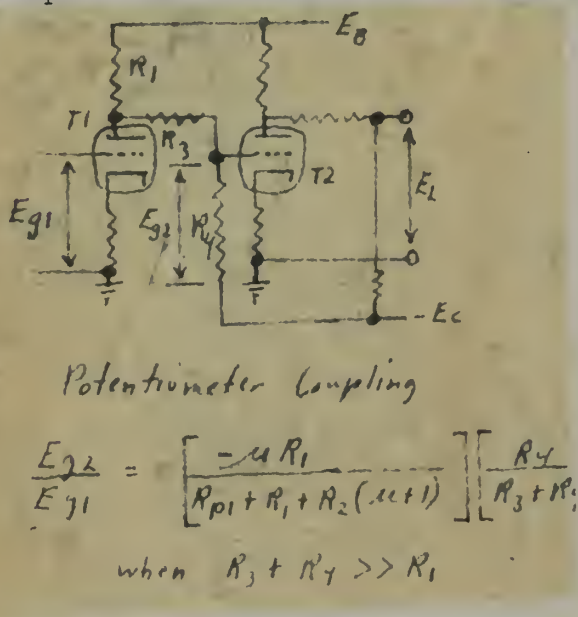 E_B
R_1
T1
R_3
T2
E_g1
E_g2
R_4
E_L
-E_c
Potentiometer Coupling
E_g2 / E_g1 = [ -μ R_1 / R_p1 + R_1 + R_2 (μ+1) ] [ R_4 / R_3 + R_4
when R_3 + R_4 >> R_1